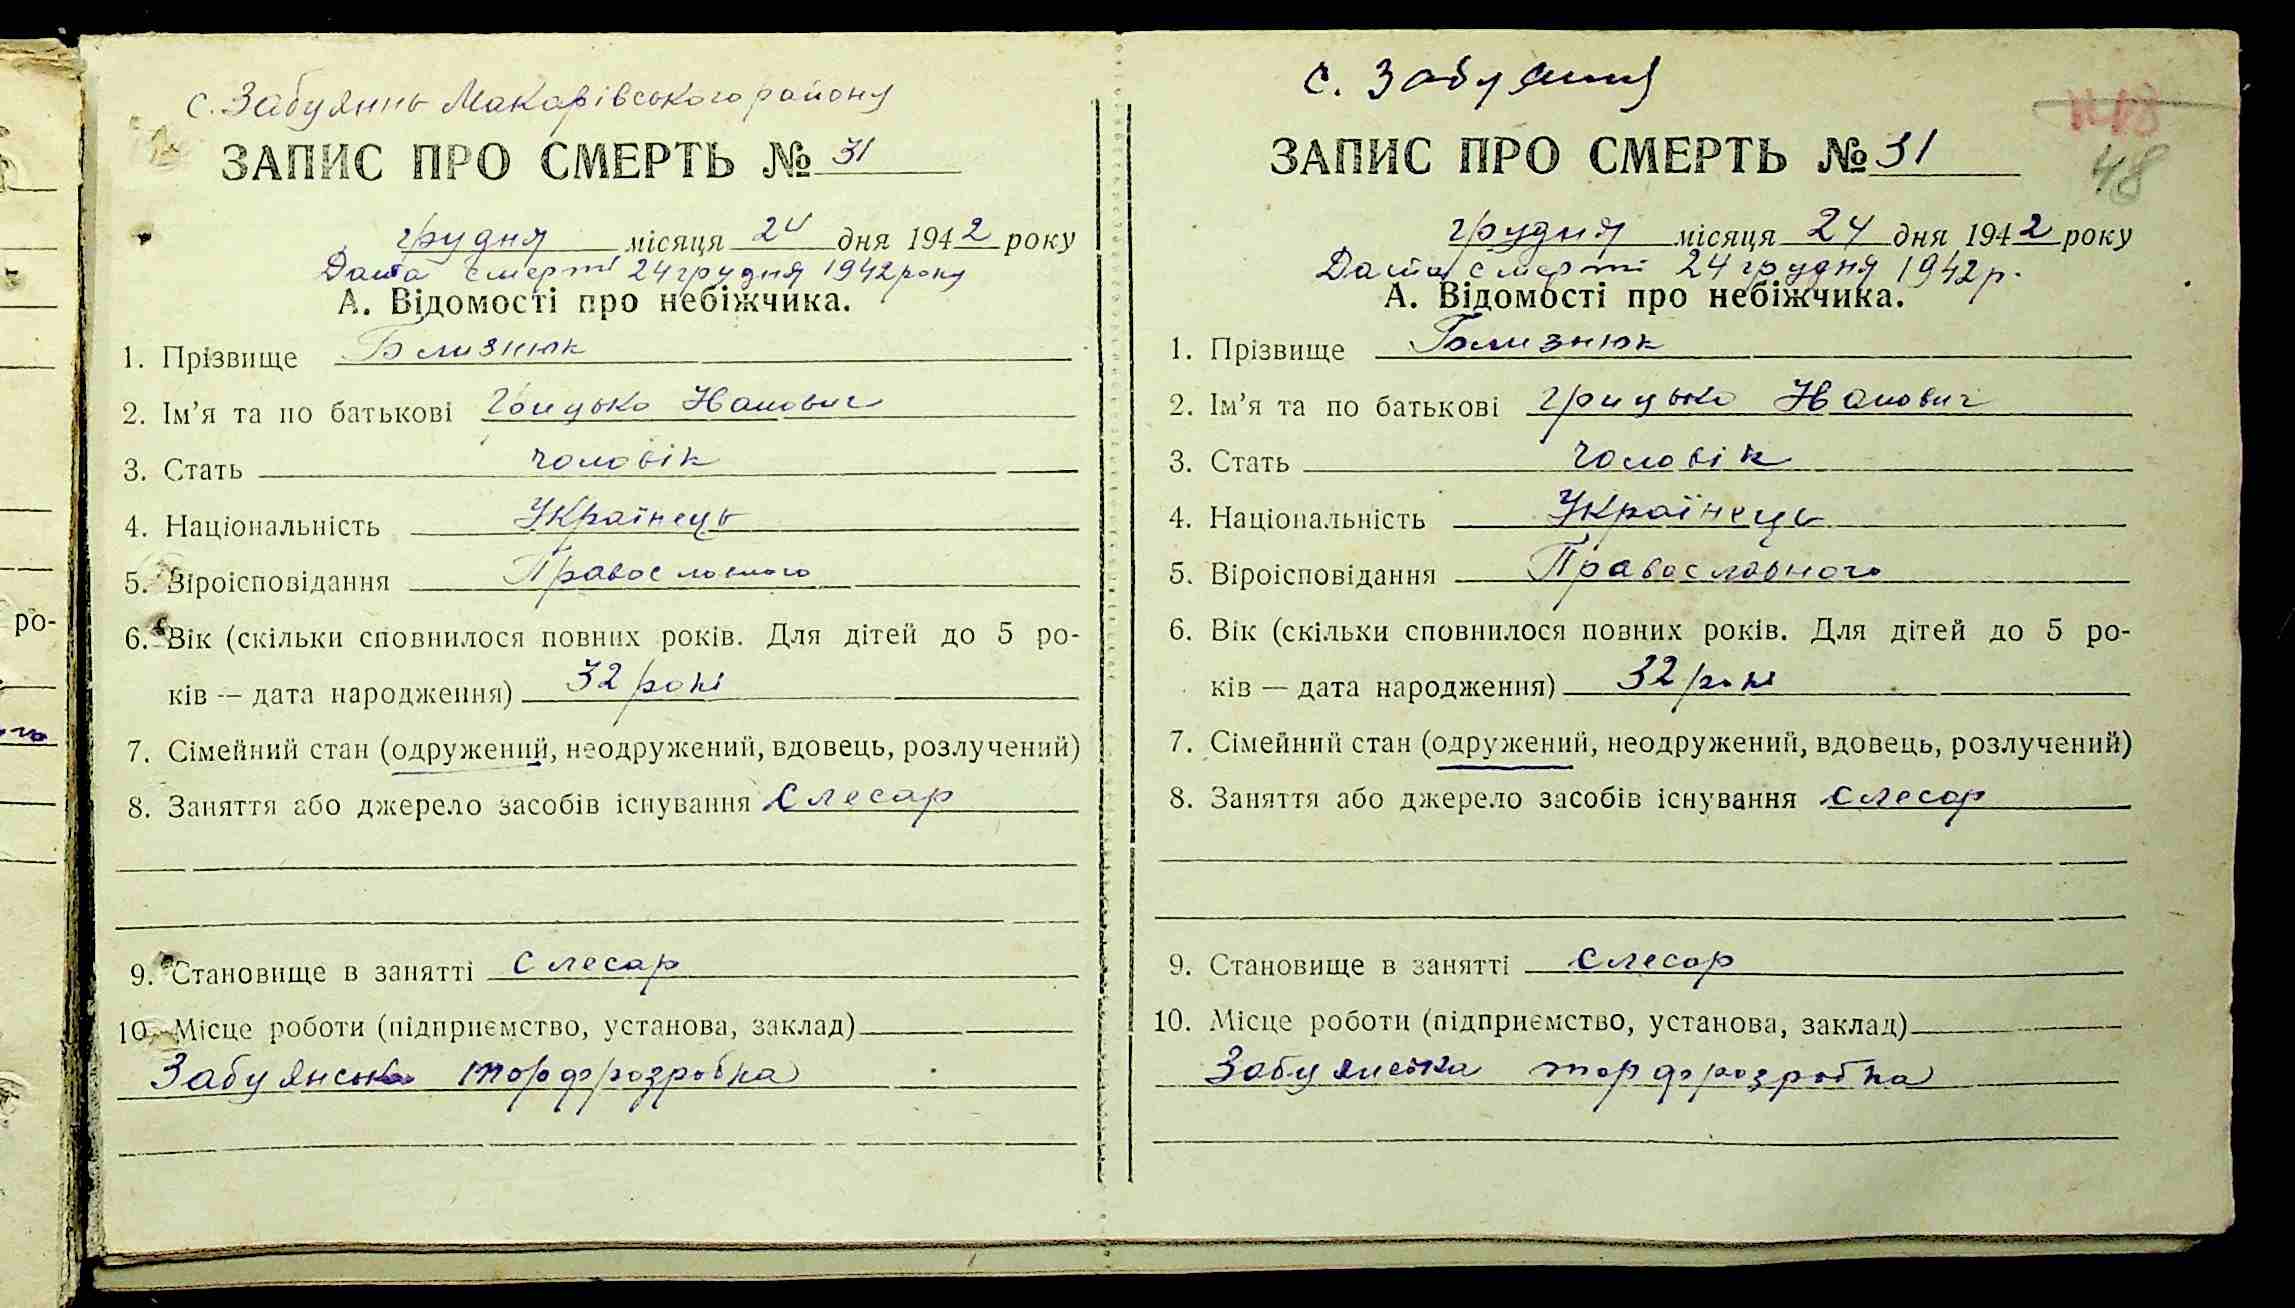 с. Забуяннь Макарівського району
ЗАПИС ПРО СМЕРТЬ № 31
грудня місяця 24 дня 1942 року
Дата смерті 24 грудня 1942 року
А. Відомості про небіжчика.
1. Прізвище Близнюк
2. Ім'я та по батькові Грицько Иванович
3. Стать чоловік
4. Національність Українець
5. Віроісповідання Православного
6. Вік (скільки сповнилося повних років. Для дітей до 5 ро-
ків — дата народження) 32 рокі
7. Сімейний стан (одружений, неодружений, вдовець, розлучений)
8. Заняття або джерело засобів існування слесар
9. Становище в занятті слесар
10. Місце роботи (підприємство, установа, заклад)
Забуянська торфрозробка
с. Забуяння
ЗАПИС ПРО СМЕРТЬ № 31
48
грудня місяця 24 дня 1942 року
Дата смерті 24 грудня 1942 р.
А. Відомості про небіжчика.
1. Прізвище Близнюк
2. Ім'я та по батькові Грицько Иванович
3. Стать чоловік
4. Національність Українець
5. Віроісповідання Православного
6. Вік (скільки сповнилося повних років. Для дітей до 5 ро-
ків — дата народження) 32 рокі
7. Сімейний стан (одружений, неодружений, вдовець, розлучений)
8. Заняття або джерело засобів існування слесар
9. Становище в занятті слесар
10. Місце роботи (підприємство, установа, заклад)
Забуянська торфрозробка
ро-